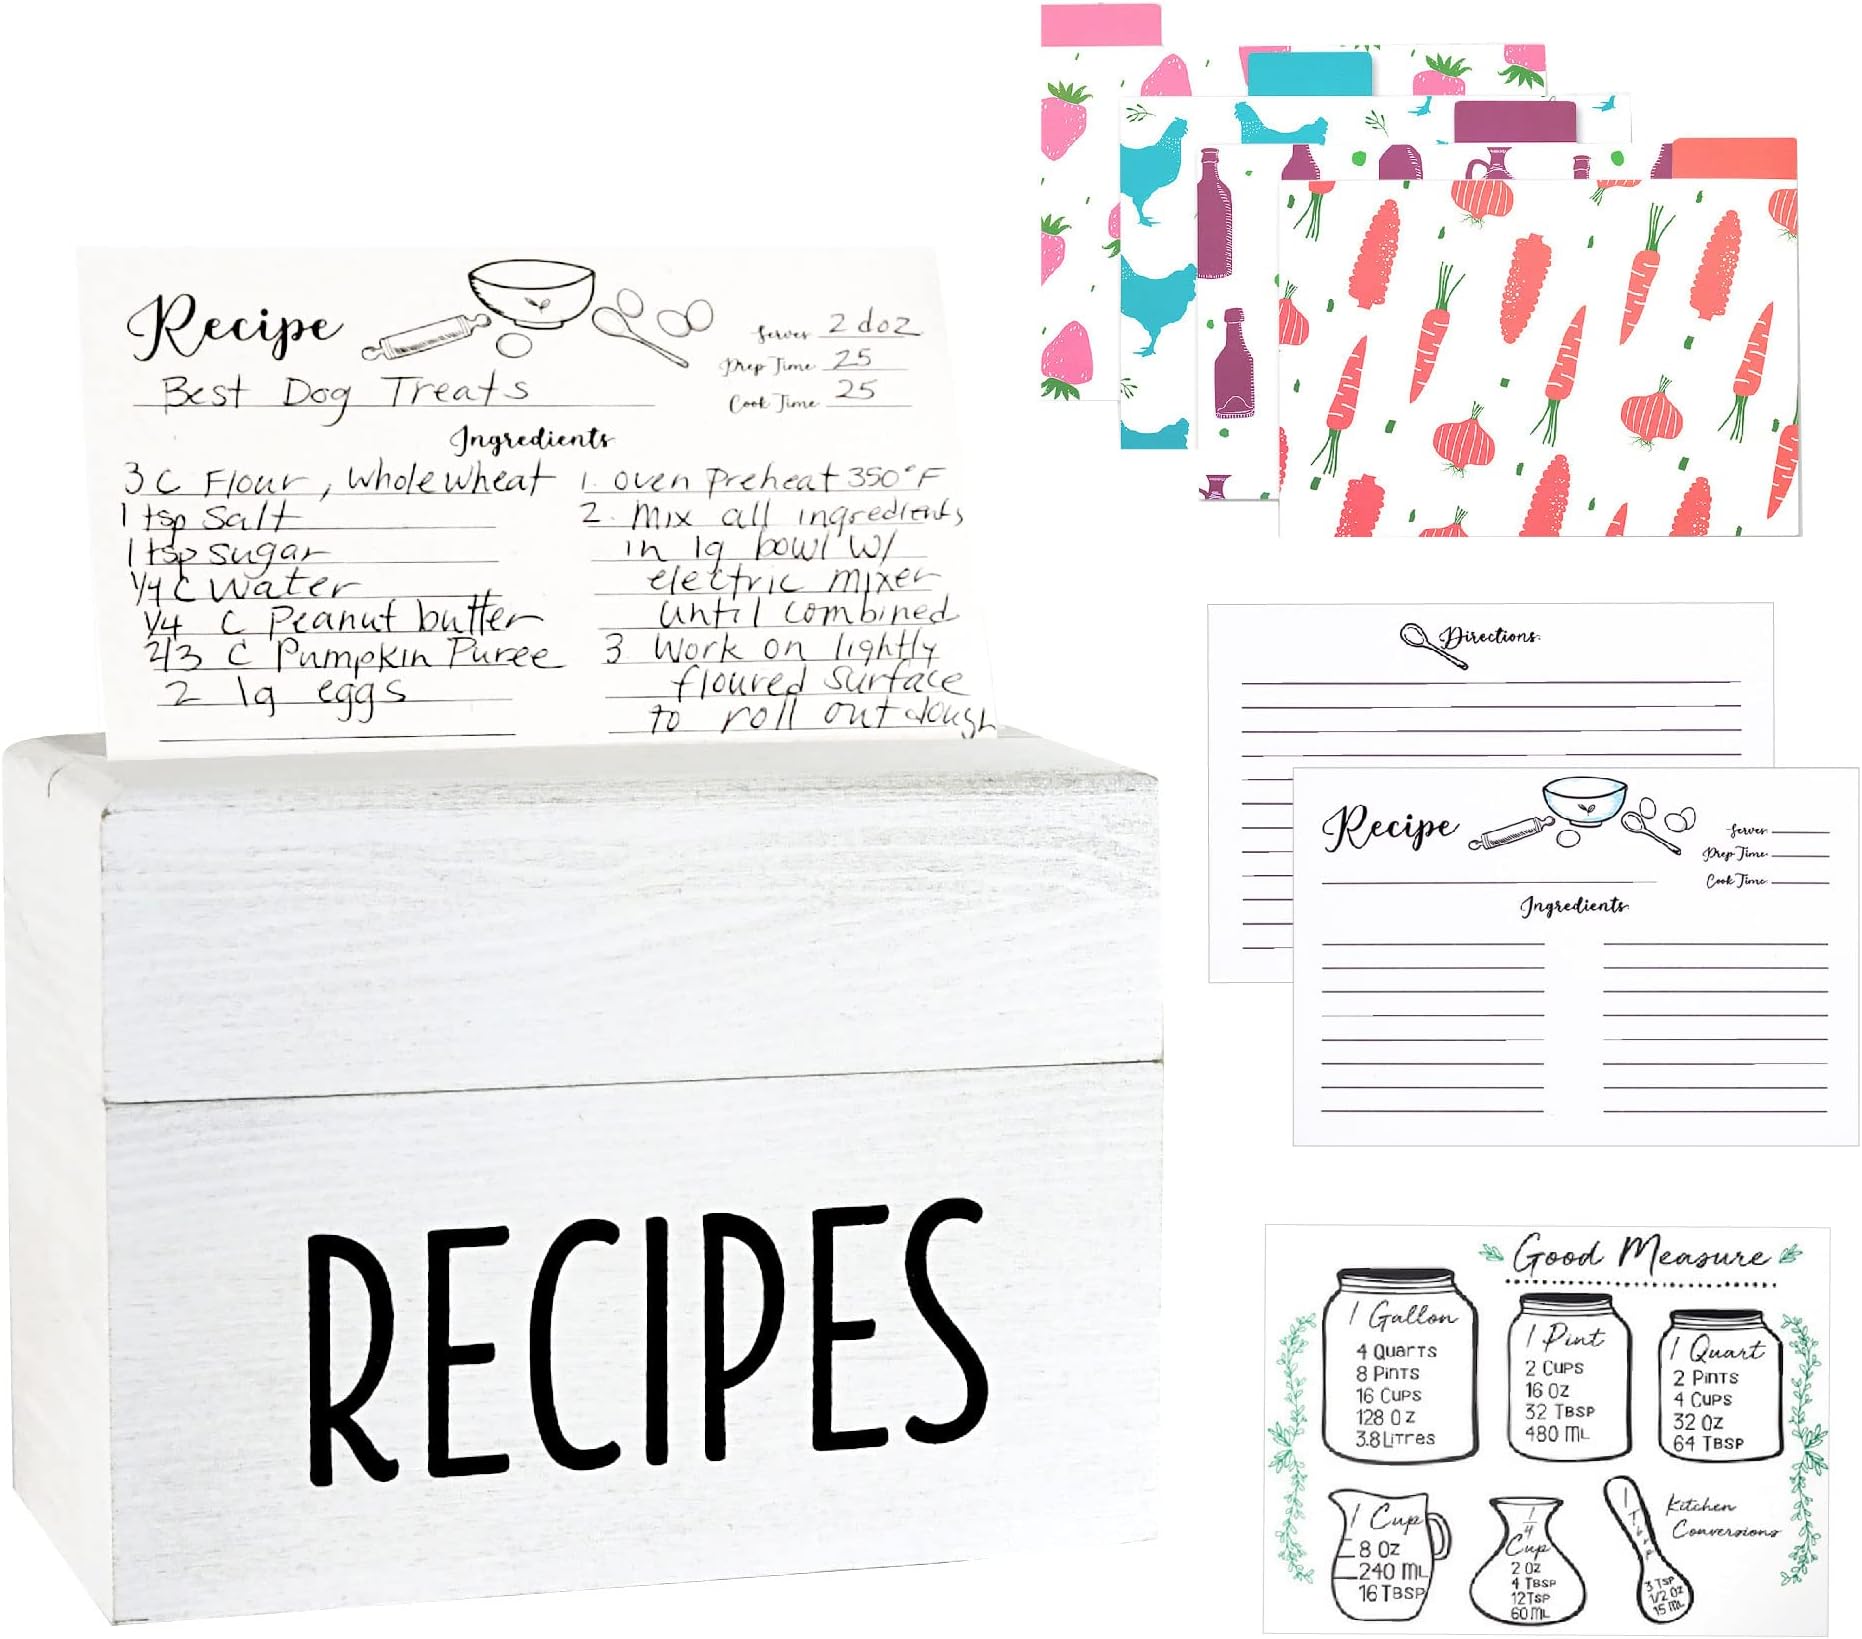 Recipe
Serves 2 doz
Prep Time 25
Cook Time 25
Best Dog Treats
Ingredients
3 C Flour, Whole wheat
1 tsp Salt
1 tsp sugar
1/4 C Water
1/4 C Peanut butter
2/3 C Pumpkin Puree
2 lg eggs
1. oven preheat 350°F
2. Mix all ingredients
in lg bowl w/
electric mixer
until combined
3 Work on lightly
floured surface
to roll out dough
RECIPES
Directions
Recipe
Serves
Prep Time
Cook Time
Ingredients
Good Measure
1 Gallon
4 Quarts
8 Pints
16 Cups
128 Oz
3.8 Litres
1 Pint
2 Cups
16 Oz
32 Tbsp
480 mL
1 Quart
2 Pints
4 Cups
32 Oz
64 Tbsp
1 Cup
8 Oz
240 mL
16 Tbsp
1/4
Cup
2 Oz
4 Tbsp
12 Tsp
60 mL
1 Tbsp
3 Tsp
1/2 Oz
15 mL
Kitchen
Conversions